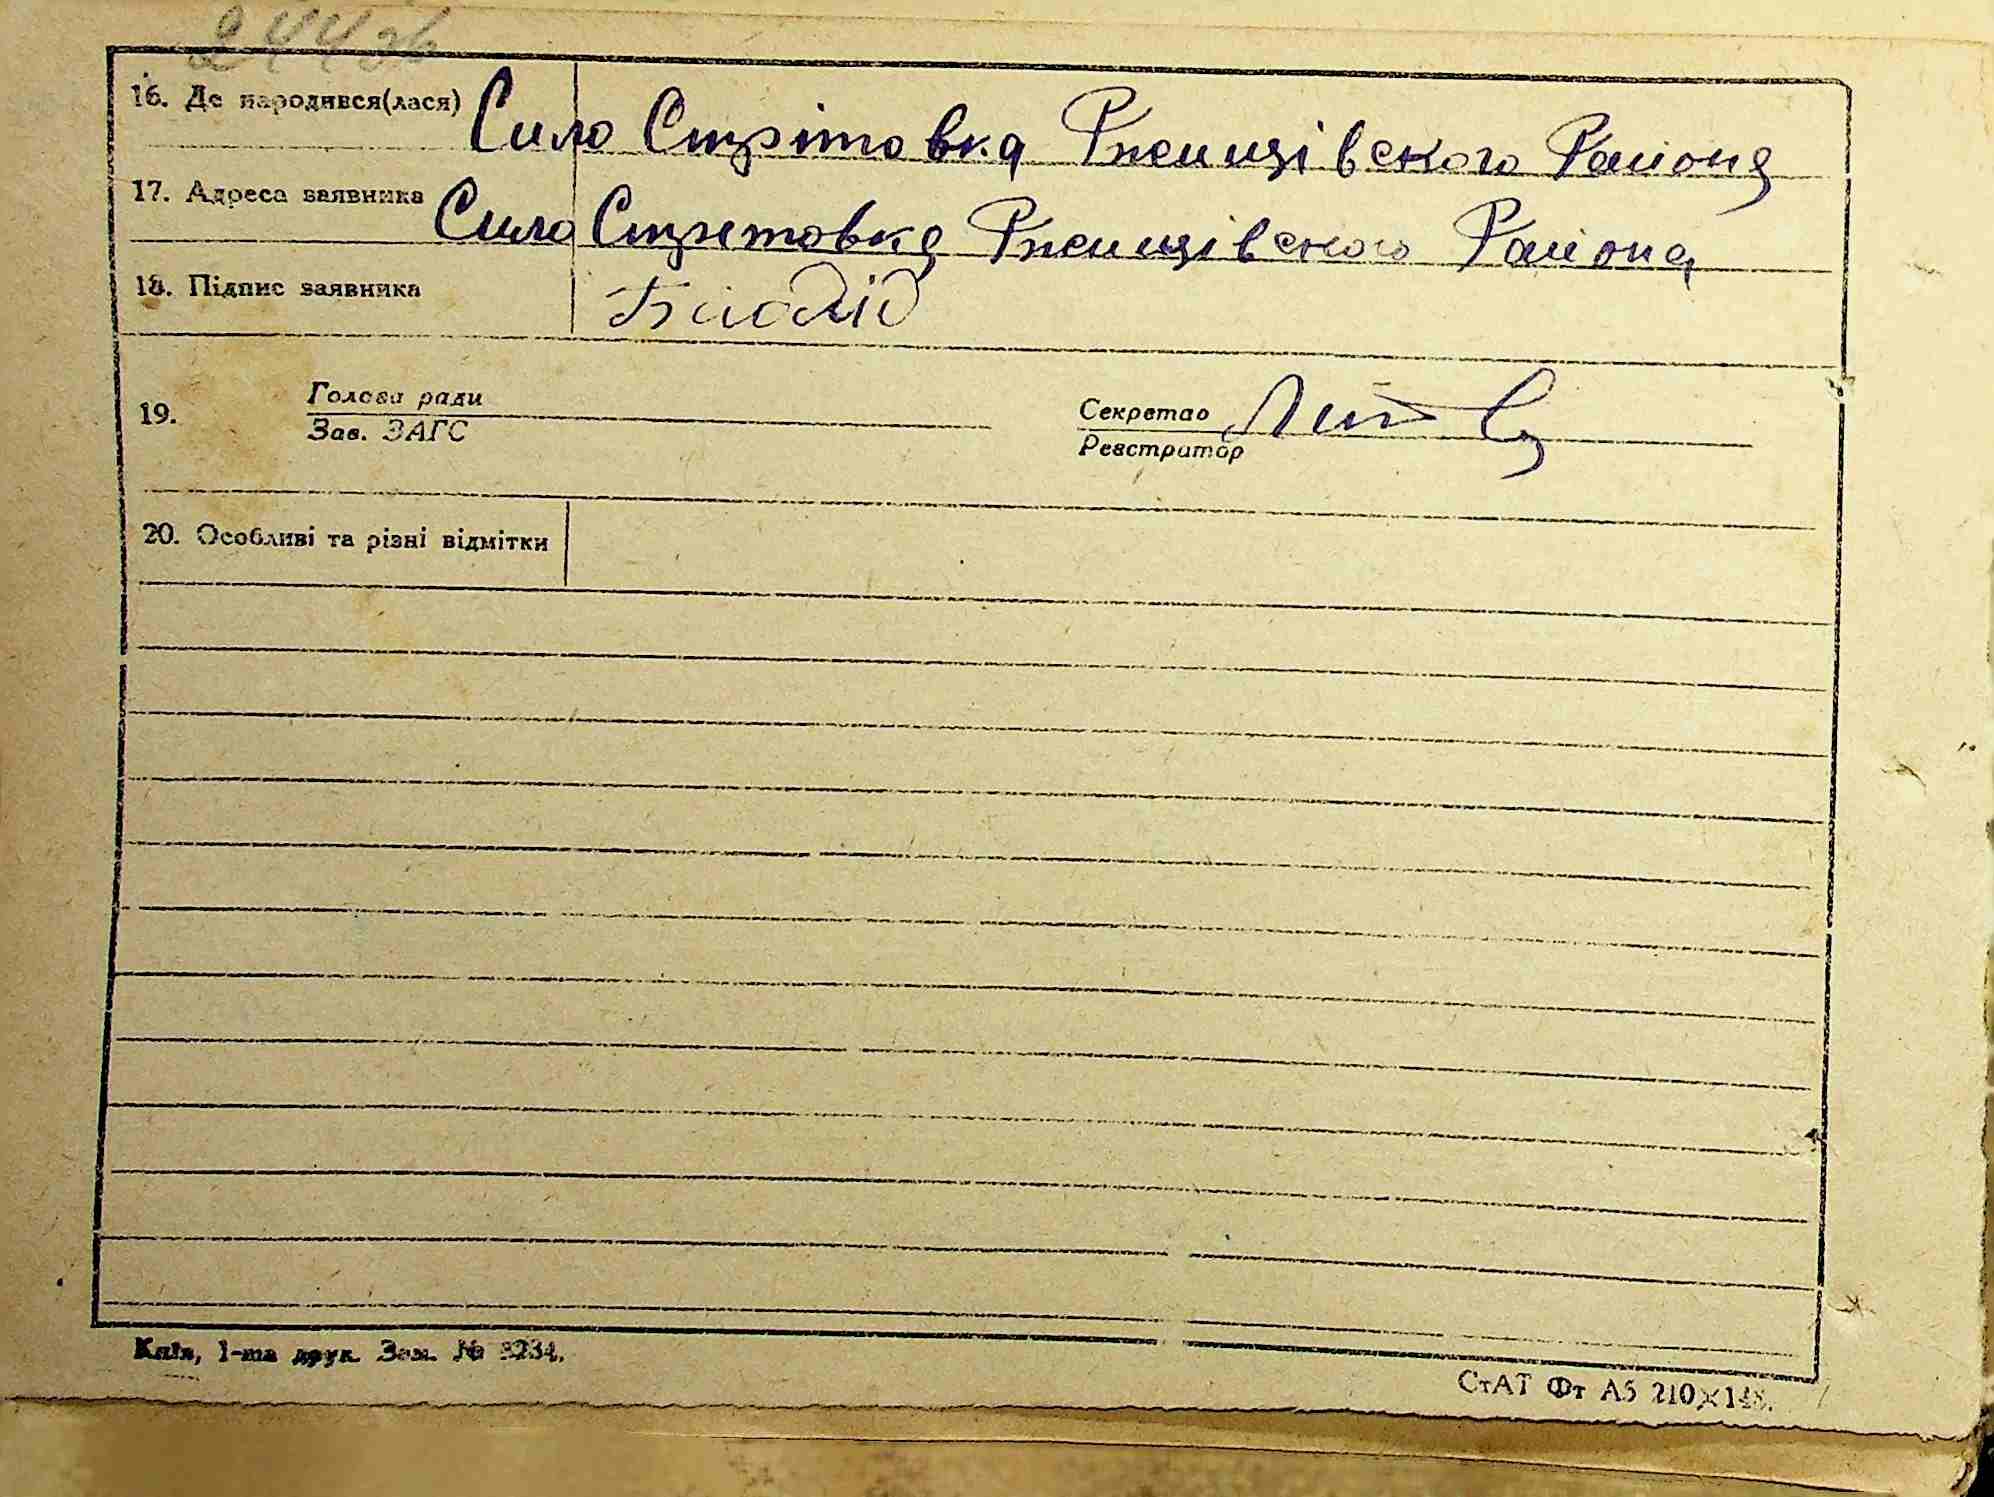 244зв
16. Де народився(лася) Сило Стрітовка Ржищівского Района
17. Адреса заявника Сило Стретовка Ржищівского Района
18. Підпис заявника
19. Голова ради Секретар
Зав. ЗАГС Реєстратор
20. Особливі та різні відмітки
Київ, 1-ша друк. Зам. № 3234.
СтАТ Фт А5 210×148.